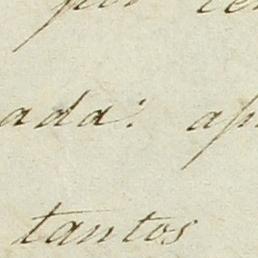 por
ada: ap
tantos